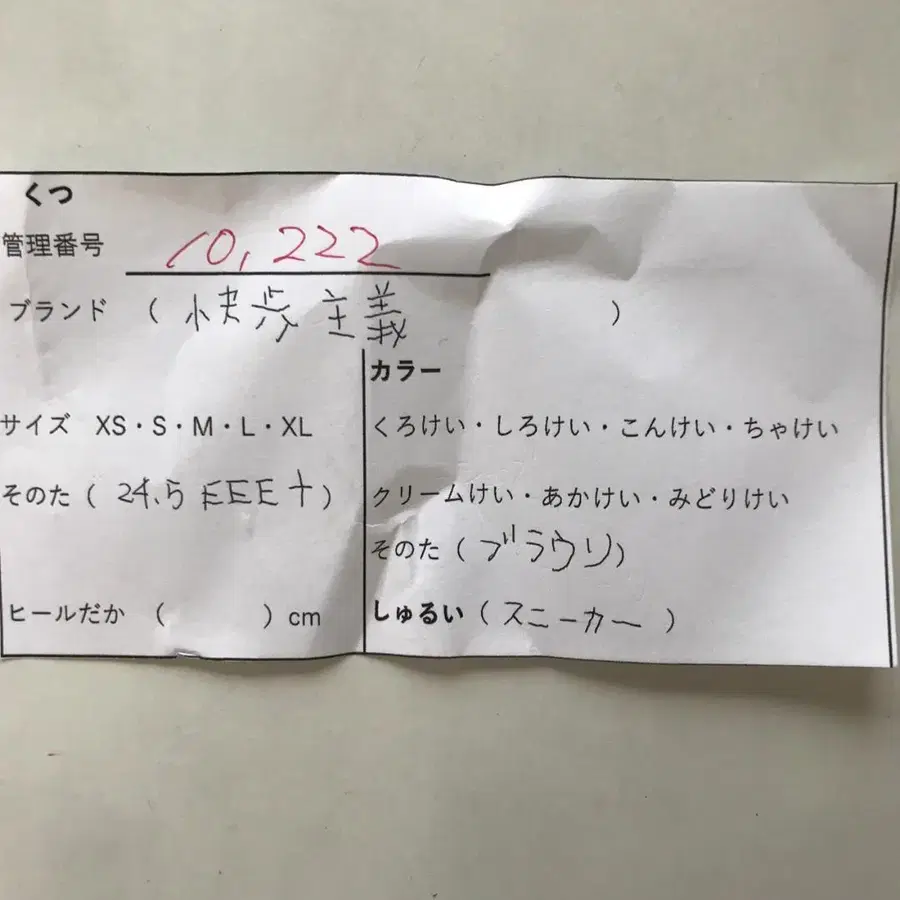 くつ
管理番号 10,222
ブランド ( 快歩主義 )
サイズ XS・S・M・L・XL
そのた ( 24.5 EEE+ )
ヒールだか ( ) cm
カラー
くろけい・しろけい・こんけい・ちゃけい
クリームけい・あかけい・みどりけい
そのた ( ブラウン )
しゅるい ( スニーカー )